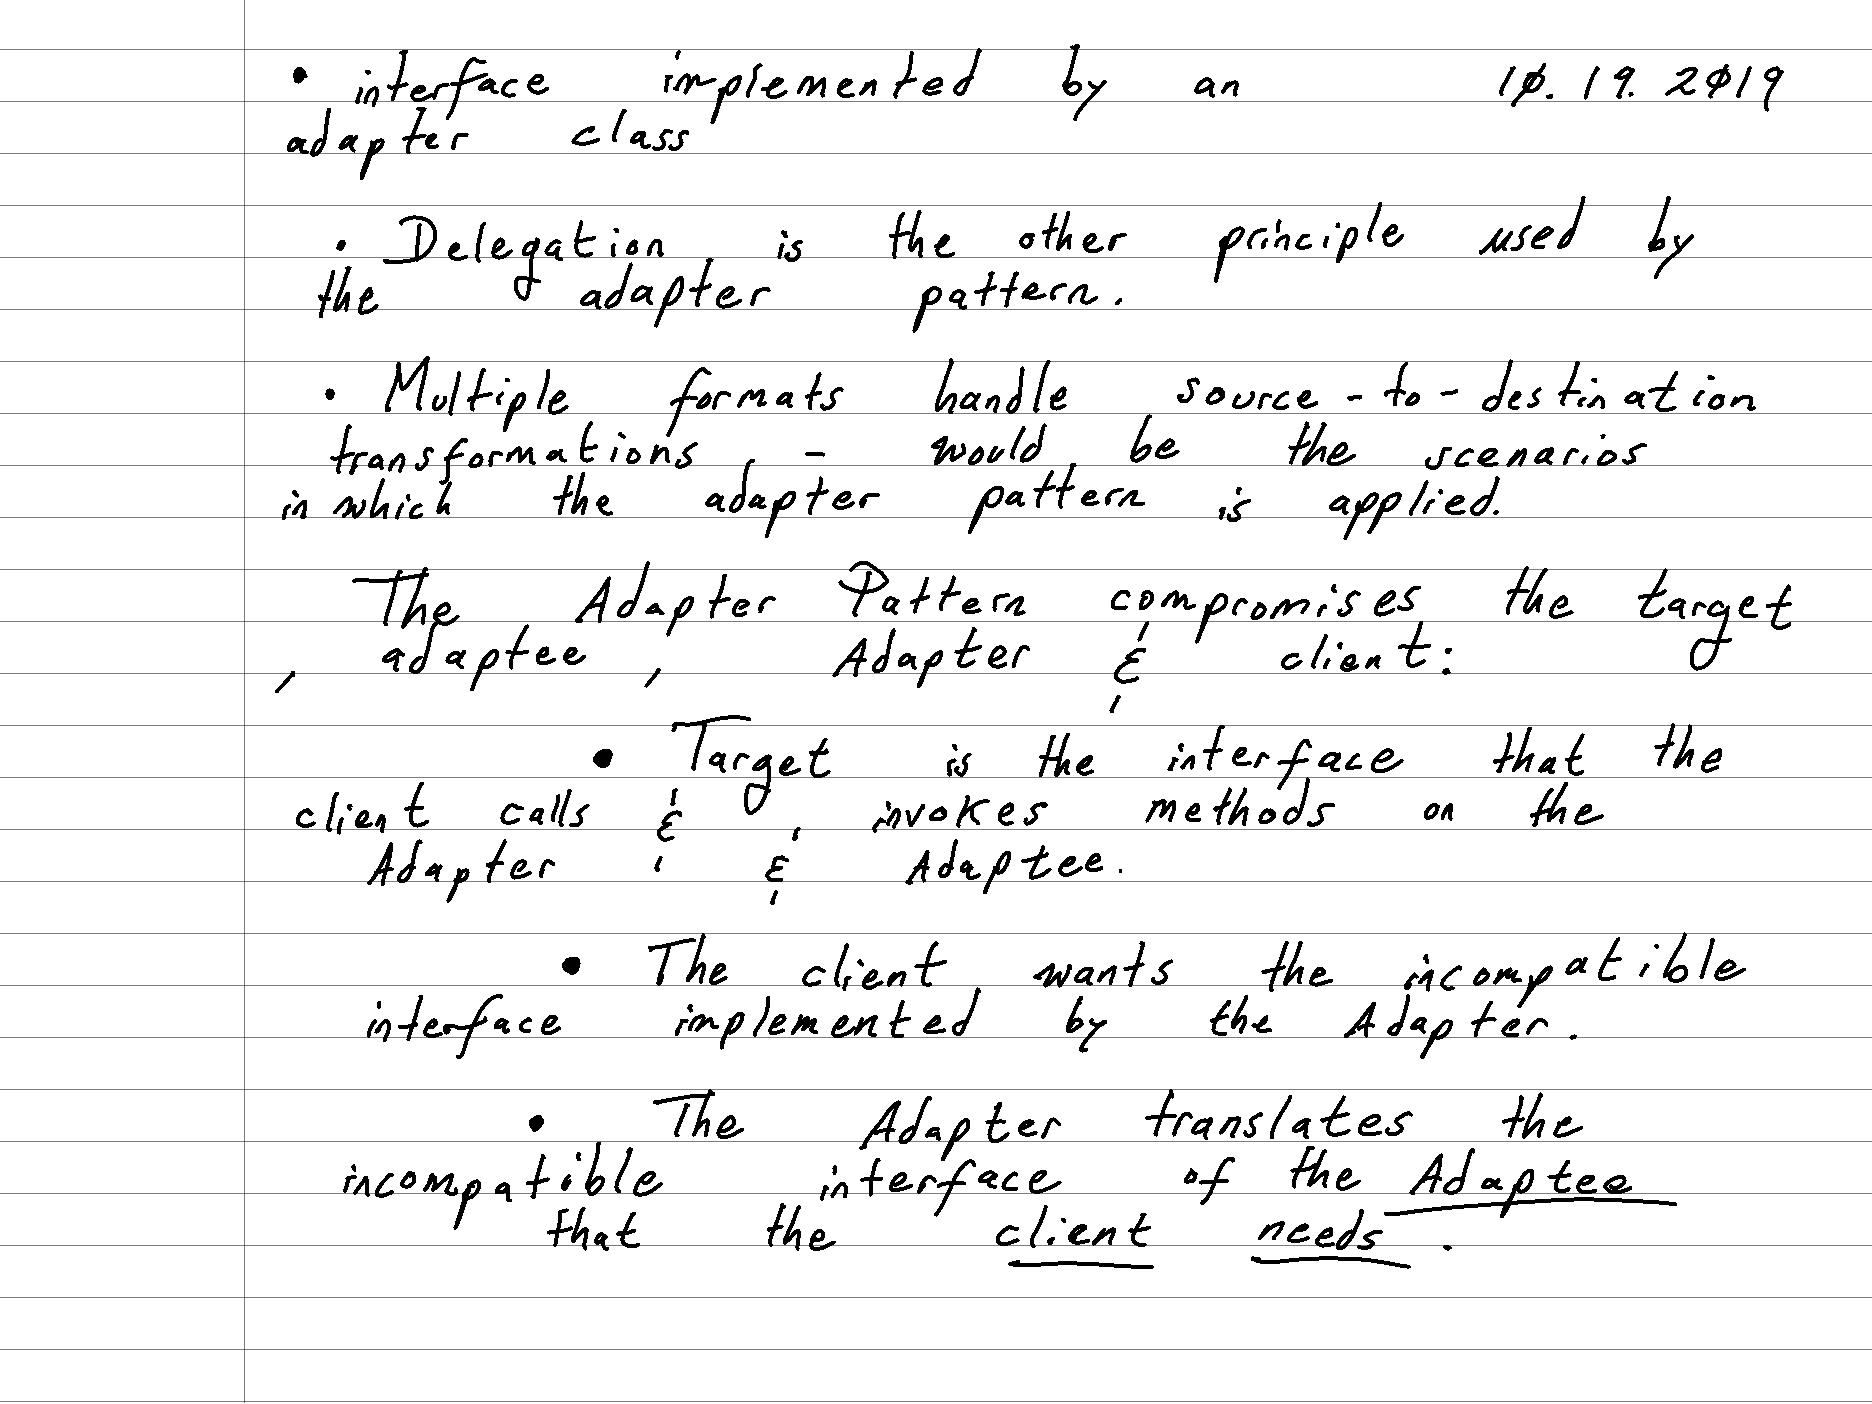 • interface implemented by an 10.19.2019
adapter class
• Delegation is the other principle used by
the adapter pattern.
• Multiple formats handle source-to-destination
transformations, - would be the scenarios
in which the adapter pattern is applied.
The Adapter Pattern compromises the target
, adaptee, Adapter & client:
• Target is the interface that the
client calls & invokes methods on the
Adapter & Adaptee.
• The client wants the incompatible
interface implemented by the Adapter.
• The Adapter translates the
incompatible interface of the Adaptee
that the client needs.